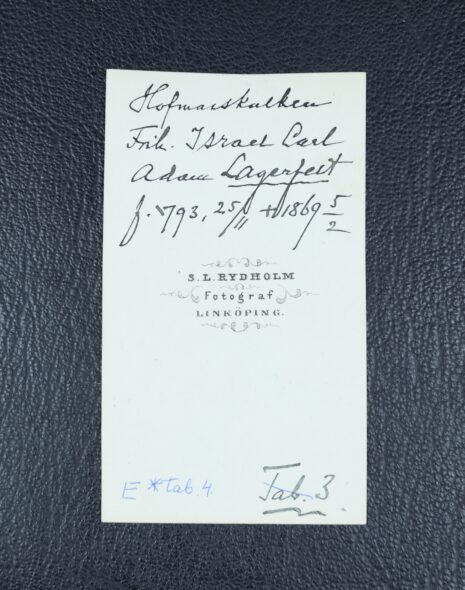 Hofmarskalken
Frih. Israel Carl
Adam Lagerfelt
f. 1793, 25/11 + 1869 5/2
S. L. RYDHOLM
Fotograf
LINKÖPING.
E *tab. 4.
Tab. 3.